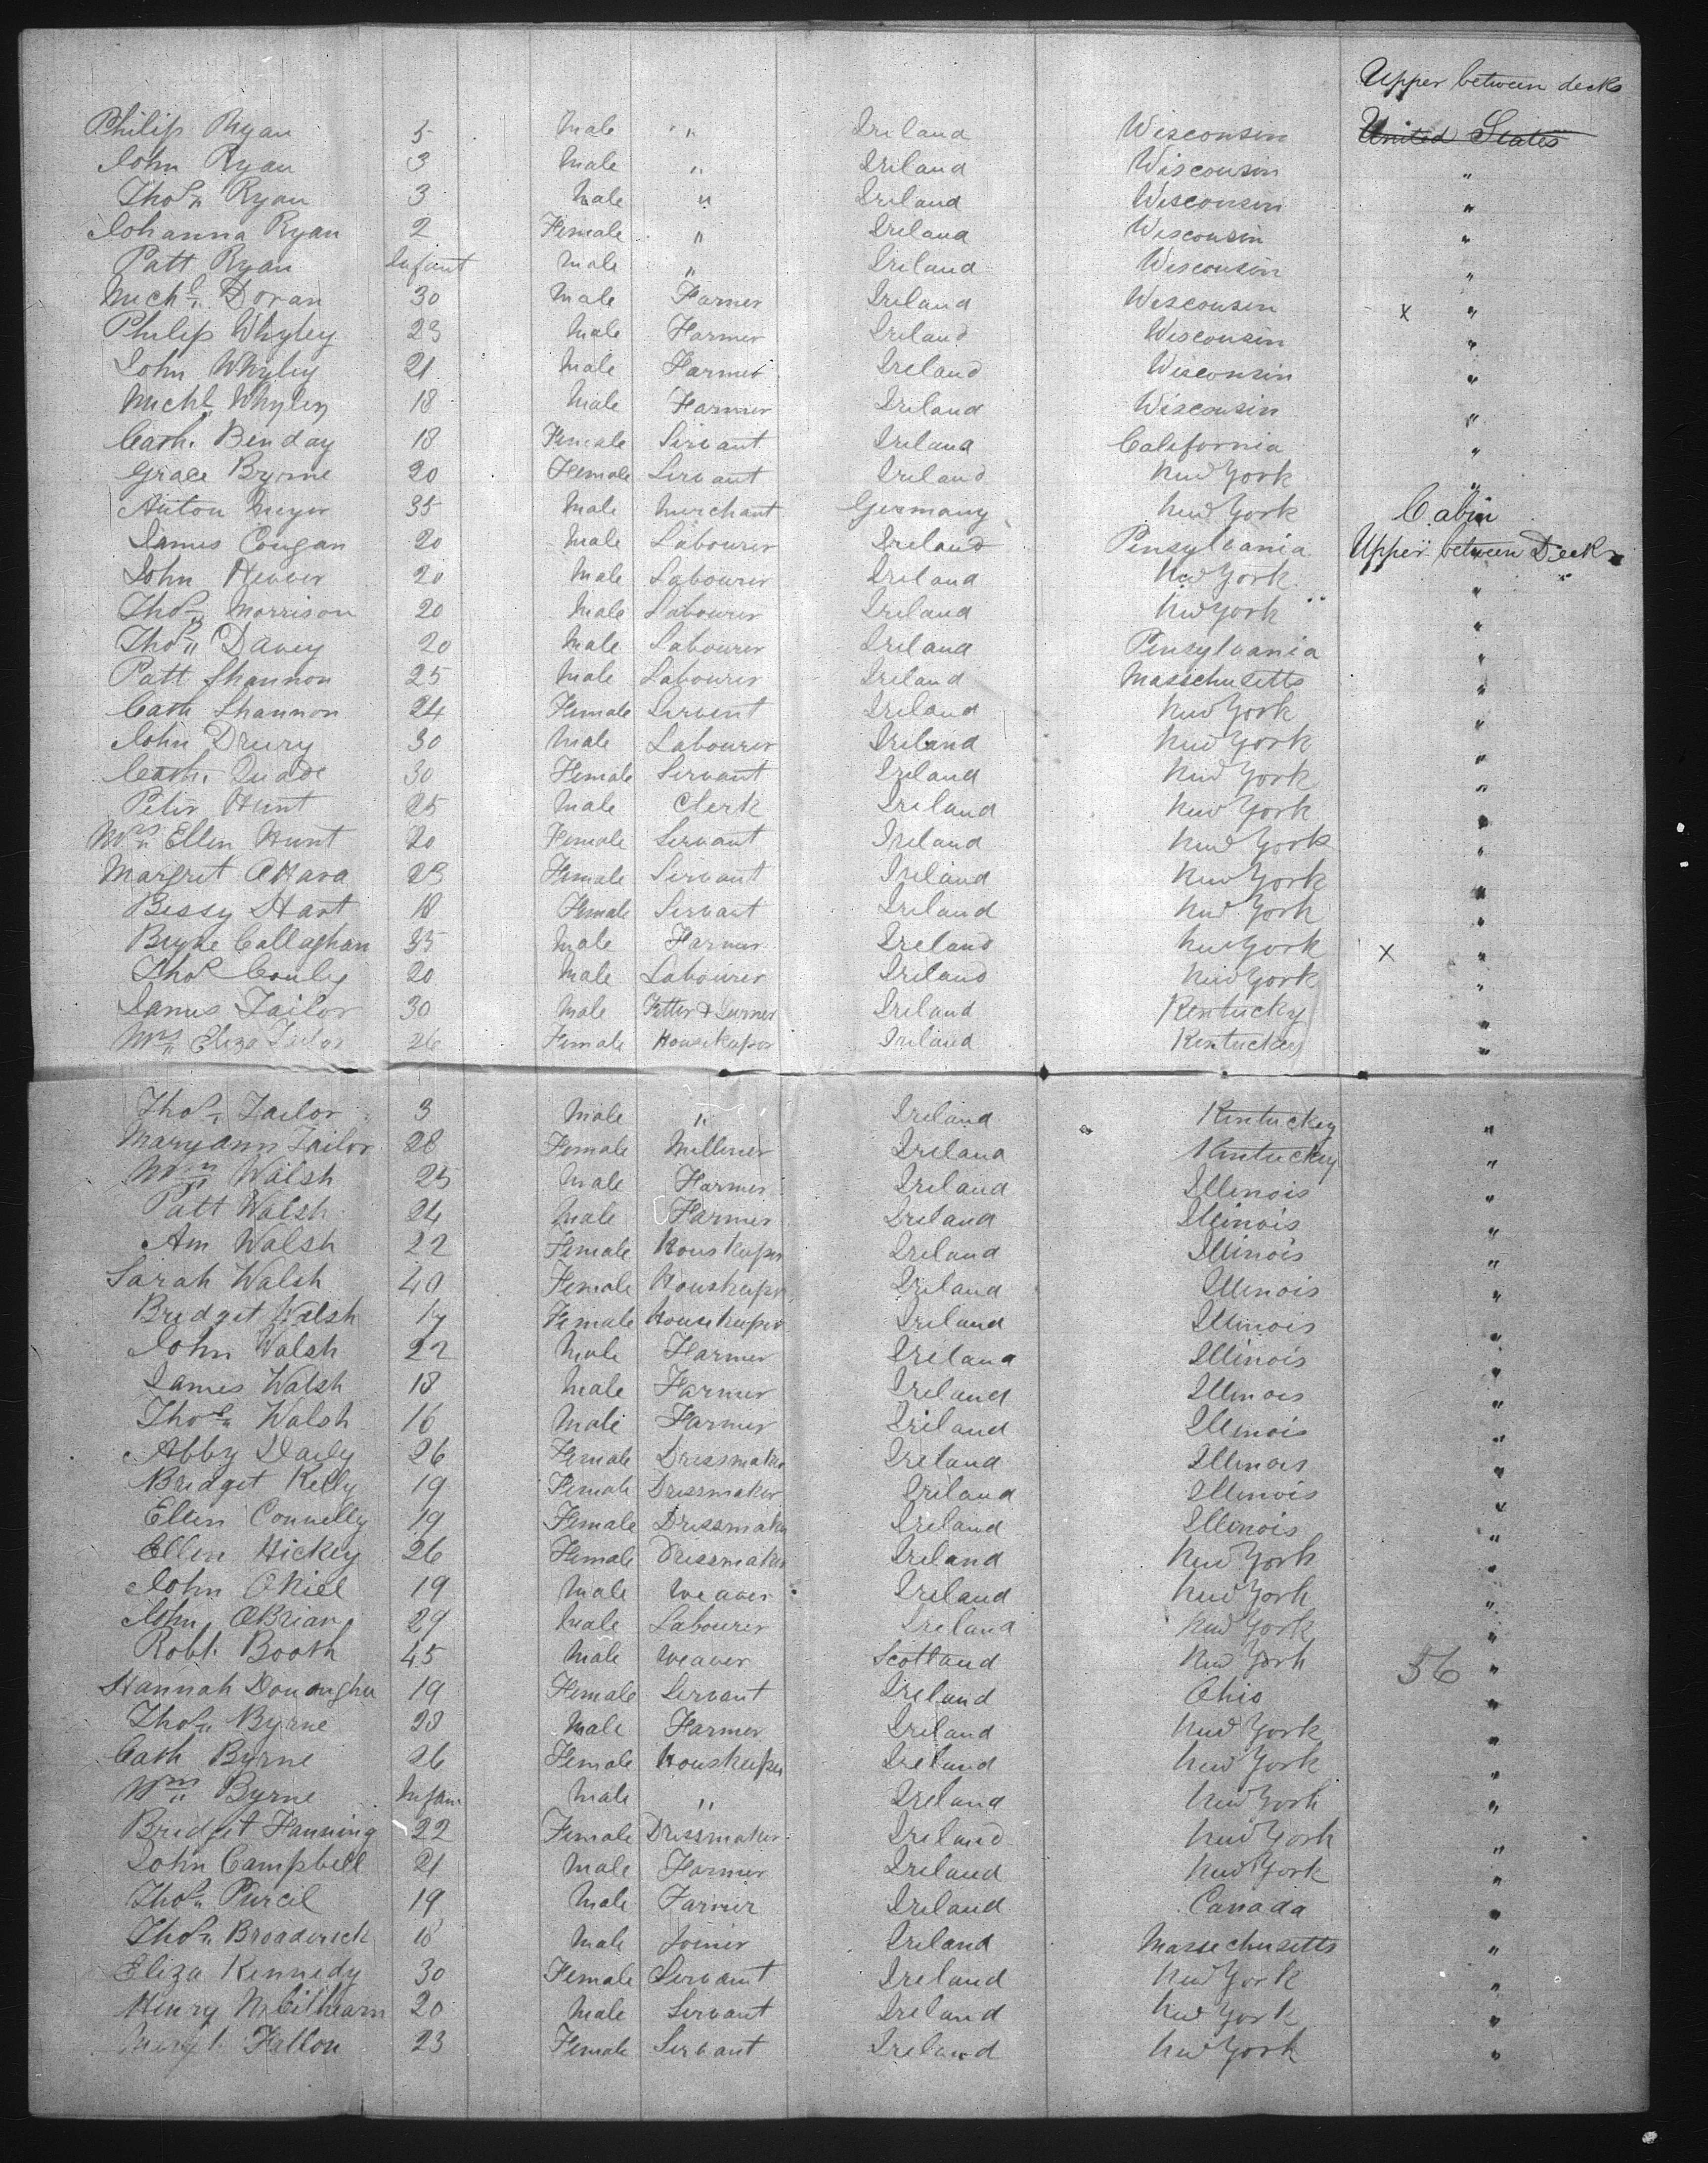 Upper between decks
Philip Ryan 5 Male " Ireland Wisconsin United States
John Ryan 3 Male " Ireland Wisconsin "
Thos. Ryan 3 Male " Ireland Wisconsin "
Johanna Ryan 2 Female " Ireland Wisconsin "
Patt Ryan Infant Male " Ireland Wisconsin "
Michl. Doran 30 Male Farmer Ireland Wisconsin x "
Philip Whyley 23 Male Farmer Ireland Wisconsin "
John Whyley 21 Male Farmer Ireland Wisconsin "
Michl. Whyley 18 Male Farmer Ireland Wisconsin "
Cath. Benday 18 Female Servant Ireland California "
Grace Byrne 20 Female Servant Ireland New York "
Anton Meyer 35 Male Merchant Germany New York Cabin
James Cougan 20 Male Labourer Ireland Pensylvania Upper between Decks
John 20 Male Labourer Ireland New York "
Thos. Morrison 20 Male Labourer Ireland New York "
Thos. Davey 20 Male Labourer Ireland Pensylvania "
Patt Shannon 25 Male Labourer Ireland Massichusetts "
Cath Shannon 24 Female Servent Ireland New York "
John Drury 30 Male Labourer Ireland New York "
Cath. Quade 30 Female Servant Ireland New York "
Peter Hunt 25 Male Clerk Ireland New York "
Mrs. Ellen Hunt 20 Female Servant Ireland New York "
Margret OHara 23 Female Servant Ireland New York "
Bessy Hart 18 Female Servant Ireland New York "
Callaghan 35 Male Farmer Ireland New York x "
Thos Conly 20 Male Labourer Ireland New York "
James Tailor 30 Male Fitter & Turner Ireland Kentucky "
Mrs. Eliza Tailor 26 Female Housekeper Ireland Kentucky "
Thos. Tailor 3 Male " Ireland Kentuckey "
Maryann Tailor 28 Female Milliner Ireland Kentuckey "
Wm. Walsh 25 Male Farmer Ireland Illinois "
Patt Walsh 24 Male Farmer Ireland Illinois "
Ann Walsh 22 Female Houskeper Ireland Illinois "
Sarah Walsh 40 Female Houskeper Ireland Illinois "
Bridget Walsh 17 Female Housekeeper Ireland Illinois "
John Walsh 22 Male Farmer Ireland Illinois "
James Walsh 18 Male Farmer Ireland Illinois "
Thos. Walsh 16 Male Farmer Ireland Illinois "
Abby Daily 26 Female Dressmaker Ireland Illinois "
Bridget Kelly 19 Female Dressmaker Ireland Illinois "
Ellen Connelly 19 Female Dressmaker Ireland Illinois "
Ellen Hickey 26 Female Dressmaker Ireland New York "
John ONiel 19 Male Weaver Ireland New York "
John OBrian 29 Male Labourer Ireland New York "
Robt. Booth 45 Male Weaver Scotland New York 56 "
Hannah Donoughu 19 Female Servant Ireland Ohio "
Thos. Byrne 28 Male Farmer Ireland New York "
Cath Byrne 26 Female Houskeeper Ireland New York "
Wm. Byrne Infant Male " Ireland New York "
Bridget Fanning 22 Female Dressmaker Ireland New York "
John Campbell 21 Male Farmer Ireland New York "
Thos. Purcil 19 Male Farmer Ireland Canada "
Thos. Broaderick 18 Male Joiner Ireland Massechusetts "
Eliza Kennedy 30 Female Servant Ireland New York "
Henry 20 Male Servant Ireland New York "
Margt. Fallon 23 Female Servant Ireland New York "